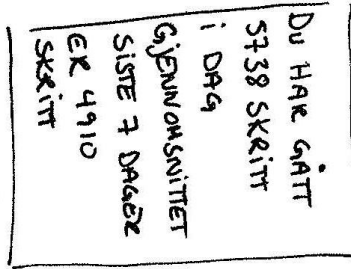 DU HAR GÅTT
5738 SKRITT
i DAG
GJENNOMSNiTTET
SiSTE 7 DAGER
ER 4910
SKRiTT